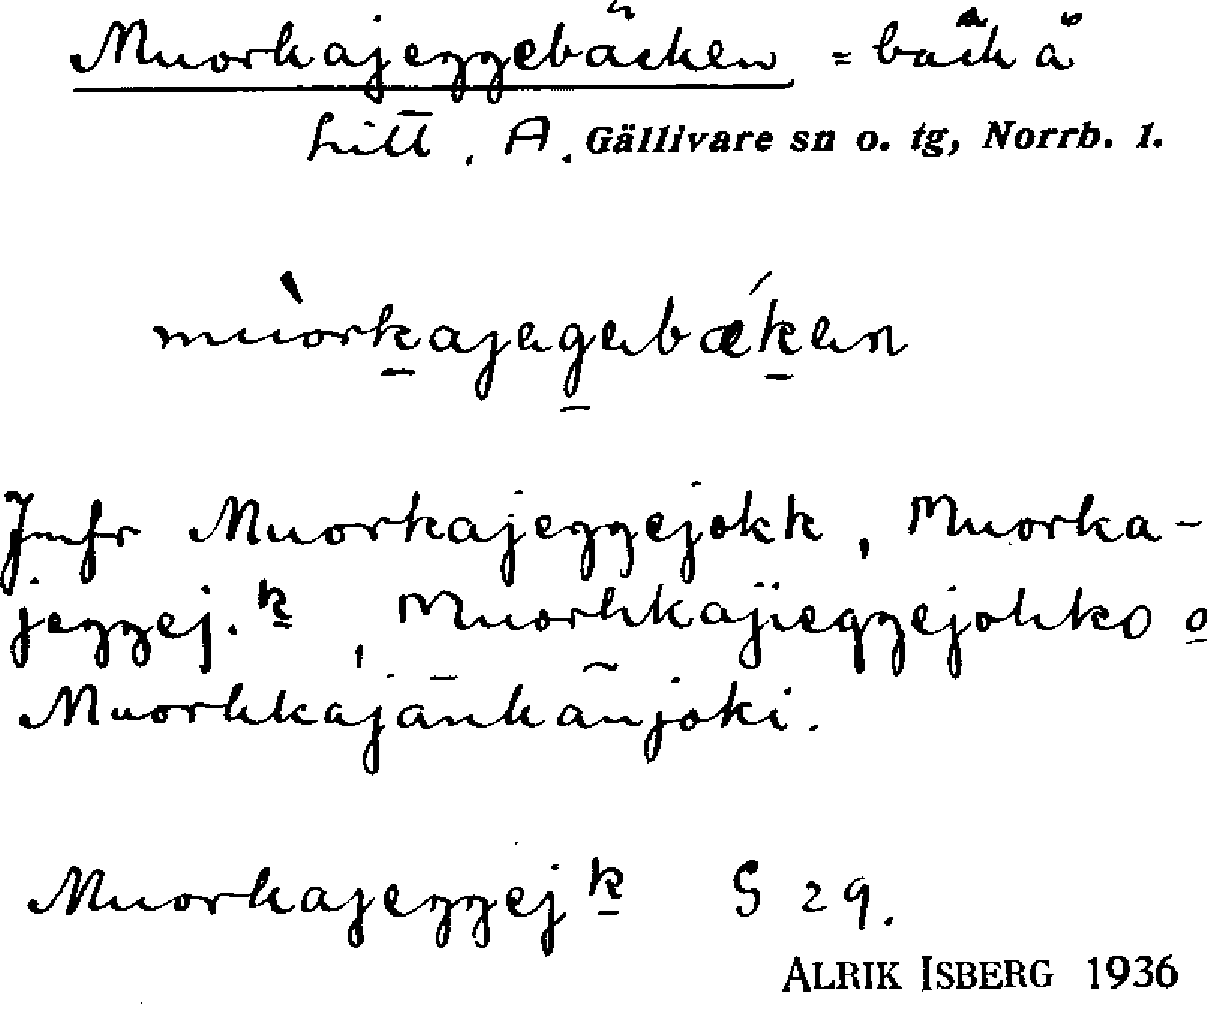 Muorkajeggebäcken = bäck å
hitt. A. Gällivare sn o. tg, Norrb. l.
mùorkajegebǽken
Jmfr Muorkajeggejokk, Muorka-
jeggej.k, Muorkkajieggejohko o
Muorkkajänkänjoki.
Muorkajeggejk S 29.
ALRIK ISBERG 1936